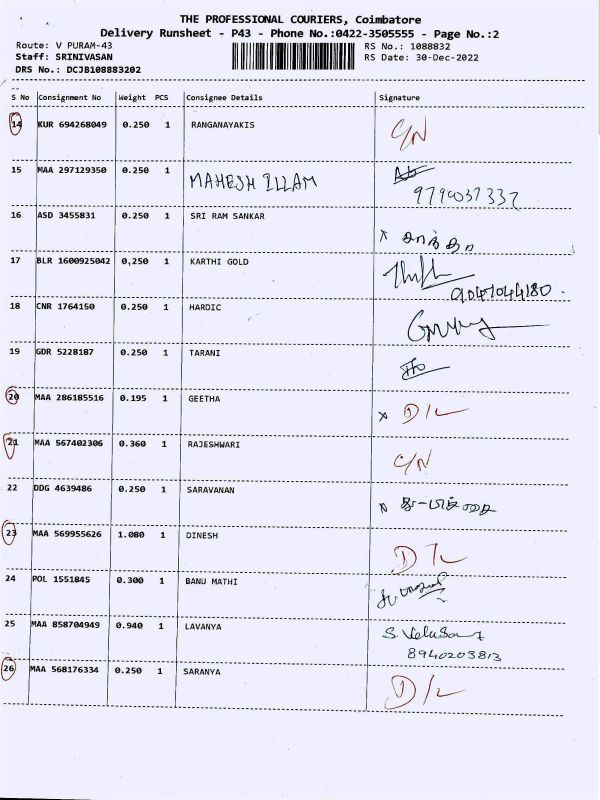 THE PROFESSIONAL COURIERS, Coimbatore
Delivery Runsheet - P43 - Phone No.:0422-3505555 - Page No.:2
Route: V PURAM-43 RS No.: 1088832
Staff: SRINIVASAN RS Date: 30-Dec-2022
DRS No.: DCJB108883202
S No Consignment No Weight PCS Consignee Details Signature
14 KUR 694268049 0.250 1 RANGANAYAKIS C/N
15 MAA 297129350 0.250 1 MAHESH ILLAM
9790037337
16 ASD 3455831 0.250 1 SRI RAM SANKAR x
17 BLR 1600925042 0,250 1 KARTHI GOLD
9047044180.
18 CNR 1764150 0.250 1 HARDIC
19 GDR 5228187 0.250 1 TARANI
20 MAA 286185516 0.195 1 GEETHA x D/L
21 MAA 567402306 0.360 1 RAJESHWARI C/N
22 DDG 4639486 0.250 1 SARAVANAN x
23 MAA 569955626 1.080 1 DINESH D/L
24 POL 1551845 0.300 1 BANU MATHI
25 MAA 858704949 0.940 1 LAVANYA
8940203813
26 MAA 568176334 0.250 1 SARANYA D/L